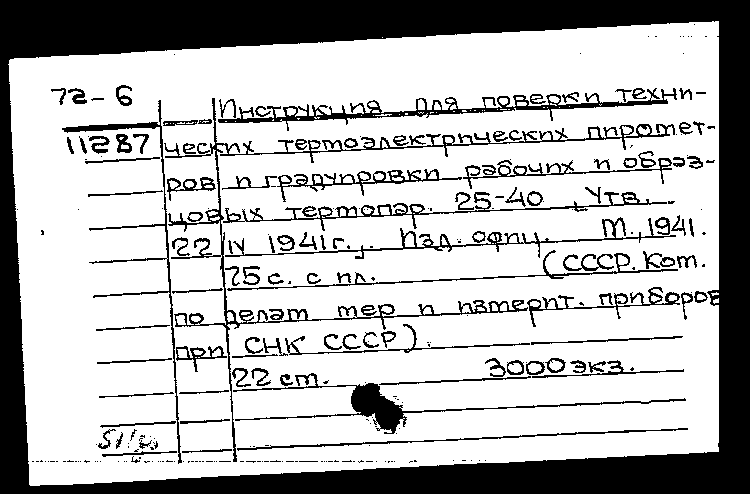 72-6
Инструкция для поверки техни-
11287 ческих термоэлектрических пиромет-
ров и градуировки рабочих и образ-
цовых термопар. 25-40, Утв.
22/IV 1941г., Изд. офиц. М., 1941.
25 с. с ил. (СССР. Ком.
по делам мер и измерит. приборов
при СНК СССР).
22 см. 3000 экз.